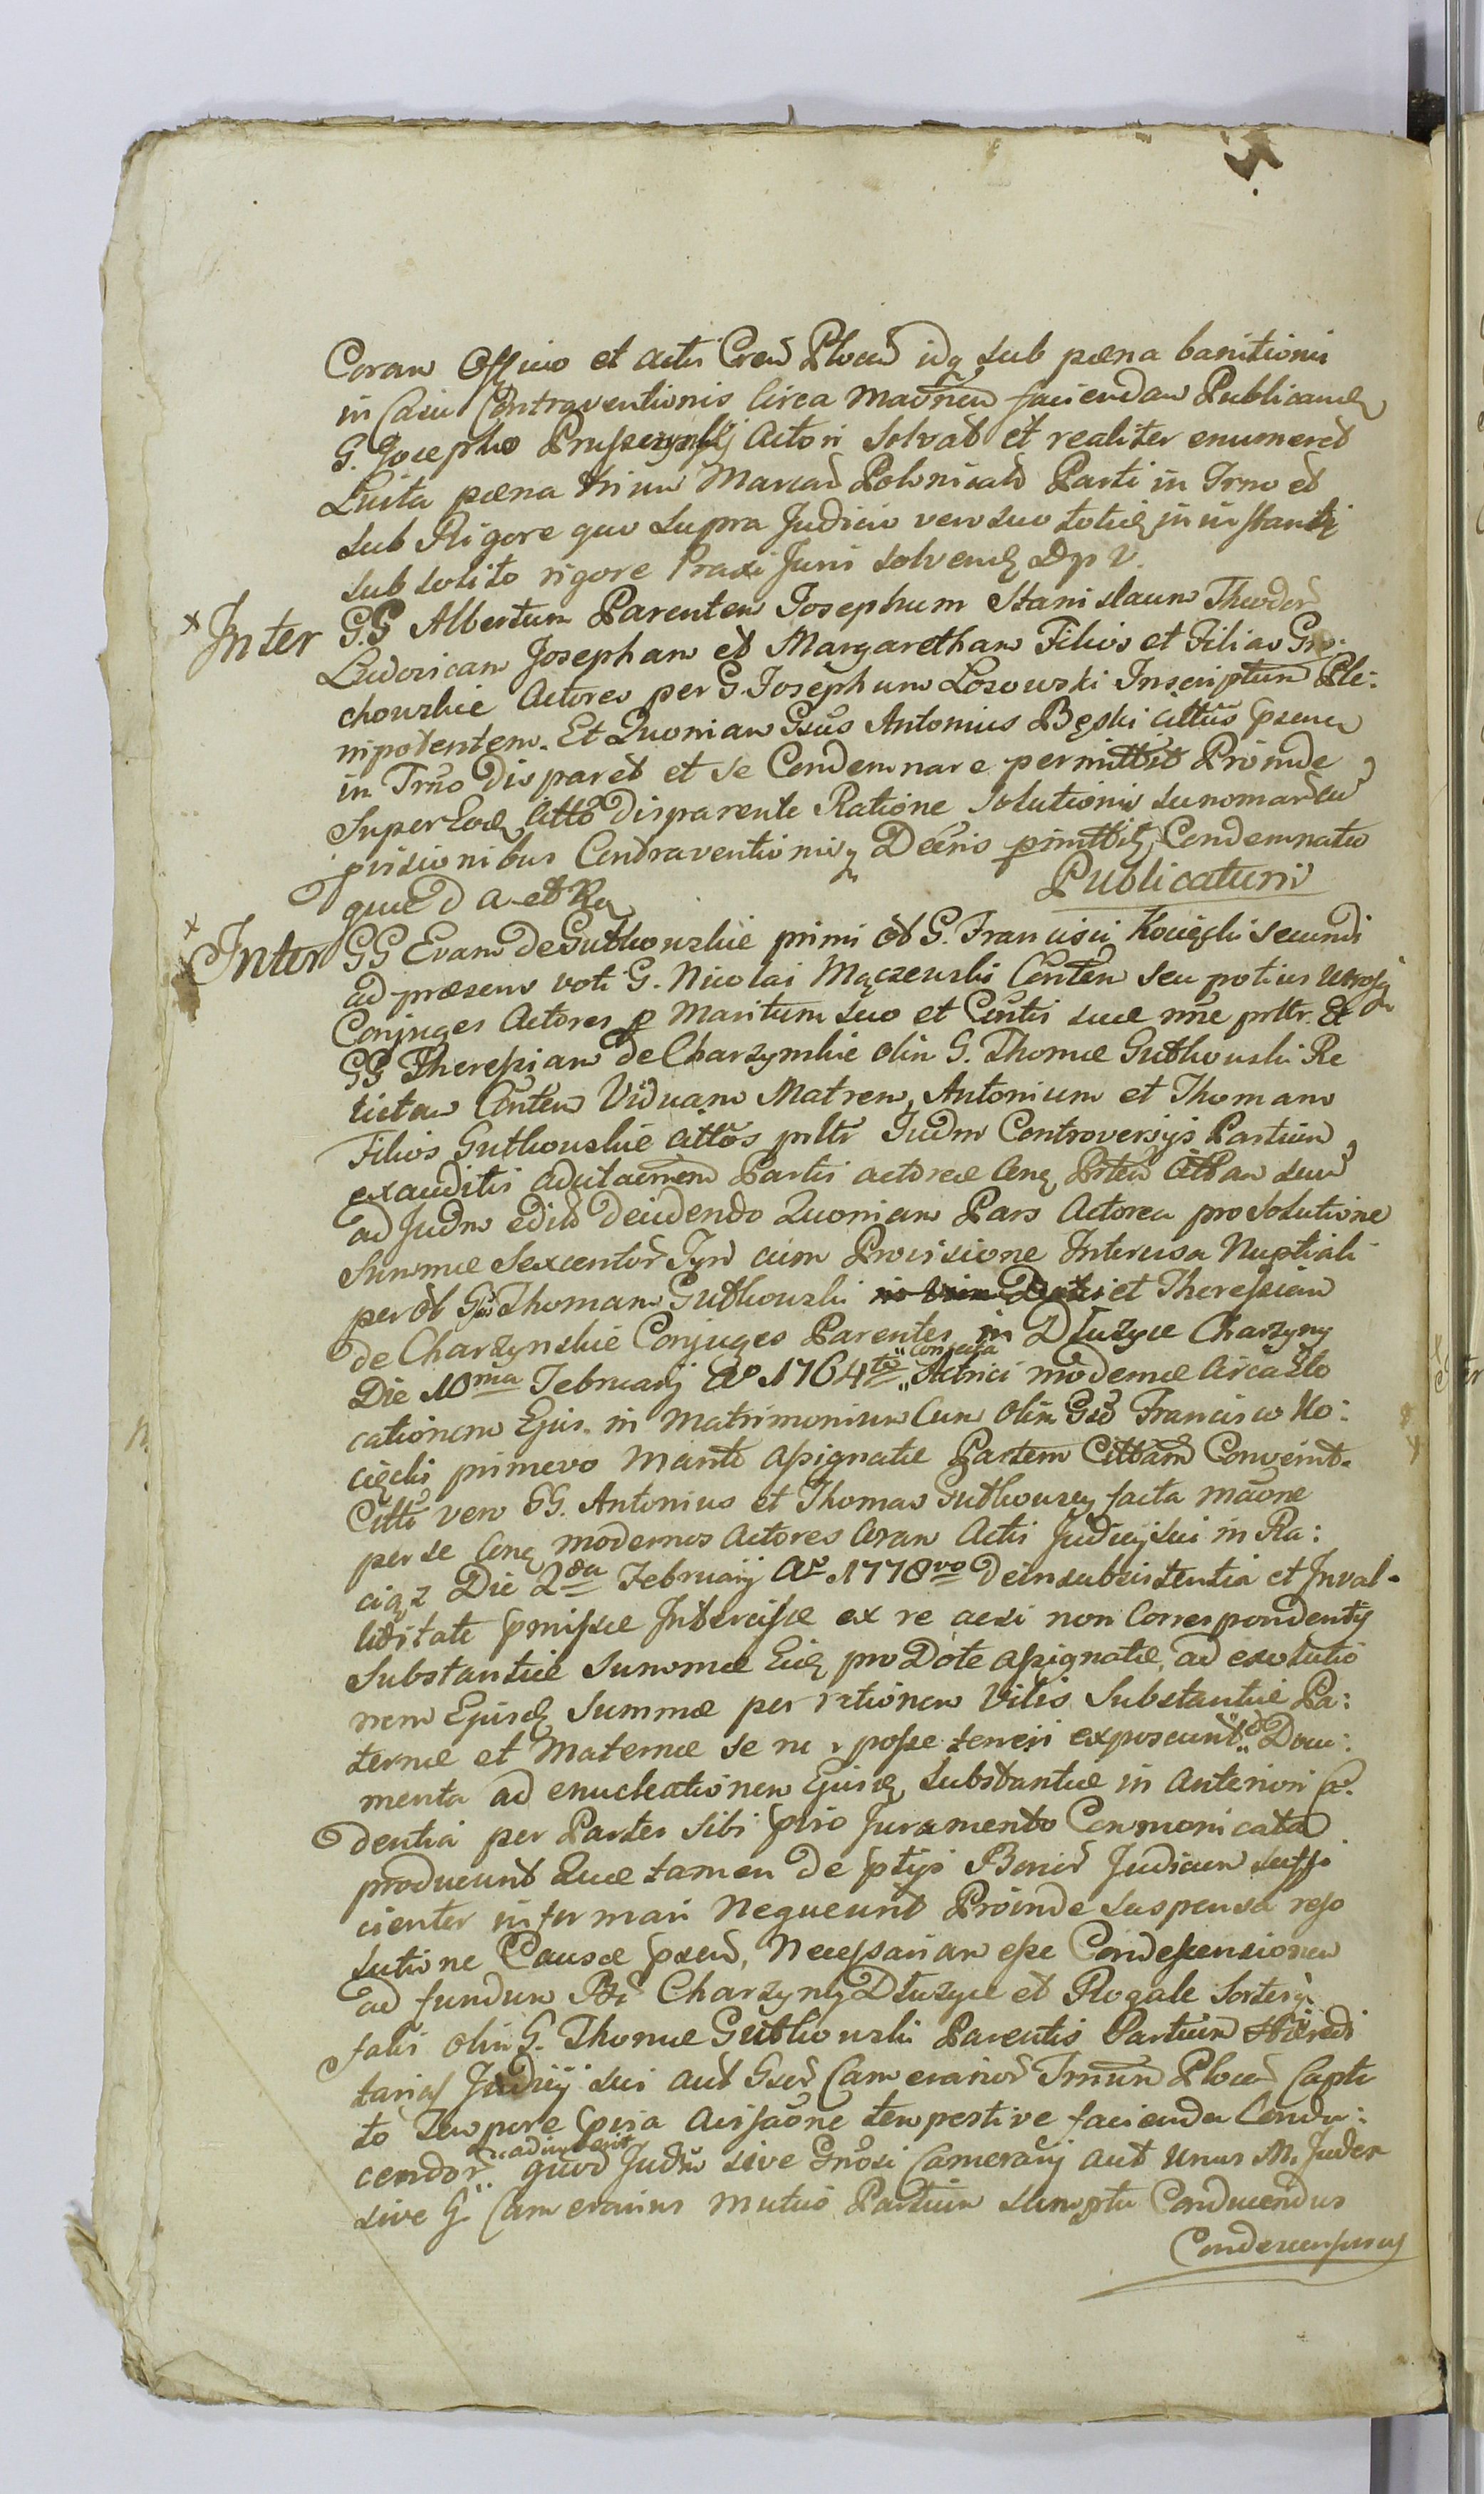 Coram Officio et actis Cren Plocen idq sub pœna banitionis
in Casu Contraventionis Circa Maõnem faciendam Publicandæ
G. Josepho Pruszczynskj Actori Solvat et realiter enumeret
Luita pœna trium Marcar Polonicalr Parti in Trno et
sub Rigore quo supra Judicio vero suo totidẽ in instanti
sub solito rigore Praxi Juris solvendæ Dp V.
Inter GG Albertum Parentem Josephum Stanislaum Theodor
Ludovicam Josepham et Margaretham Filios et Filias Gro:
chowskie Actores per G. Josephum Losowski Inscriptum Ple:
nipotentem. Et Quoniam Gsus Antonius Bęski Cittus psenen
in Trno disparet et se Condemnare permittit Proinde
Super Eod Citto disparente Ratione Solutionis
visionibus Contraventioniq Decris pmittit Condemnatio
quæ d a et Ra
Publicatum
Inter GG Evam de Gutkowskie primi et G. Francisci Kocięcki secundi
ad præsens voti G. Nicolai Mączewski Conten seu potius utrosq
Conjuges Actores p Maritum suo et Contis suæ nne prltr. Et
GG Theressiam de Charzynskie olim G. Thomæ Gutkowski Re
lictam Conten Viduam Matrem, Antonium et Thomam
Filios Gutkowskie Cittos prltr Judm Controversijs Partium
exauditis Partis actoreæ Ptem Cittam
ad Judm edit Decidendo Quoniam Pars Actorea pro solutione
Summæ Sexcentor Tyn cum Provisione Intercisa Nuptiali
per ol Gsu Thomam Gutkowski et Theressiam
de Charzynskie Conjuges Parentes in Dłuzyce Charzyny
Die 10ma Februarij Ao 1764to "confecta" Actrici modernæ Circa Elo
cationem Ejus. in Matrimonium Cum Olim Gso Francisco Ko:
cięcki primevo Marito assignatæ Partem Cittam Convenit.
Citti vero GG. Antonius et Thomas Gutkowscy facta maone
per se modernos Actores Coram Actis Judicij sui in Ra:
ciąz Die 2da Februarij Ao 1778vo de insubsistentia et Inval-
liditate pmissæ Intercisæ ex re acsi non Correspondentis
Substantiæ Summæ Eid pro Dote assignatæ, ad exolutio
nem Ejusd Summæ per rationem Vilis Substantiæ Pa:
ternæ et Maternæ se posse teneri exposcunt Docu:
menta ad enucleationem Ejusd substantiæ in Anteriori Ca:
dentia per Partes sibi pvio Juramento Conmonicata
producunt Quæ tamen de ptijs Bonor Judicium suffi
cienter informari Nequeunt Proinde Suspensa reso
lutione Causæ psen, Necessariam esse Condescensionem
ad fundum Charzyny Dłuzyce et Rogale Sortesq
tales olim G. Thomæ Gutkowski Parentis Partium Hæredi
tarias Judicij sui aut Gsor Camerarior Trnun Plocen Capti
to Tempore pvia Avisaone tempestive facienda Condu:
cendor "adinvenit" quod Judm sive Gnosi Camerarij aut Unus M. Judex
sive G. Camerarius mutuo Partium sumptu Conducendus
Condescensurus